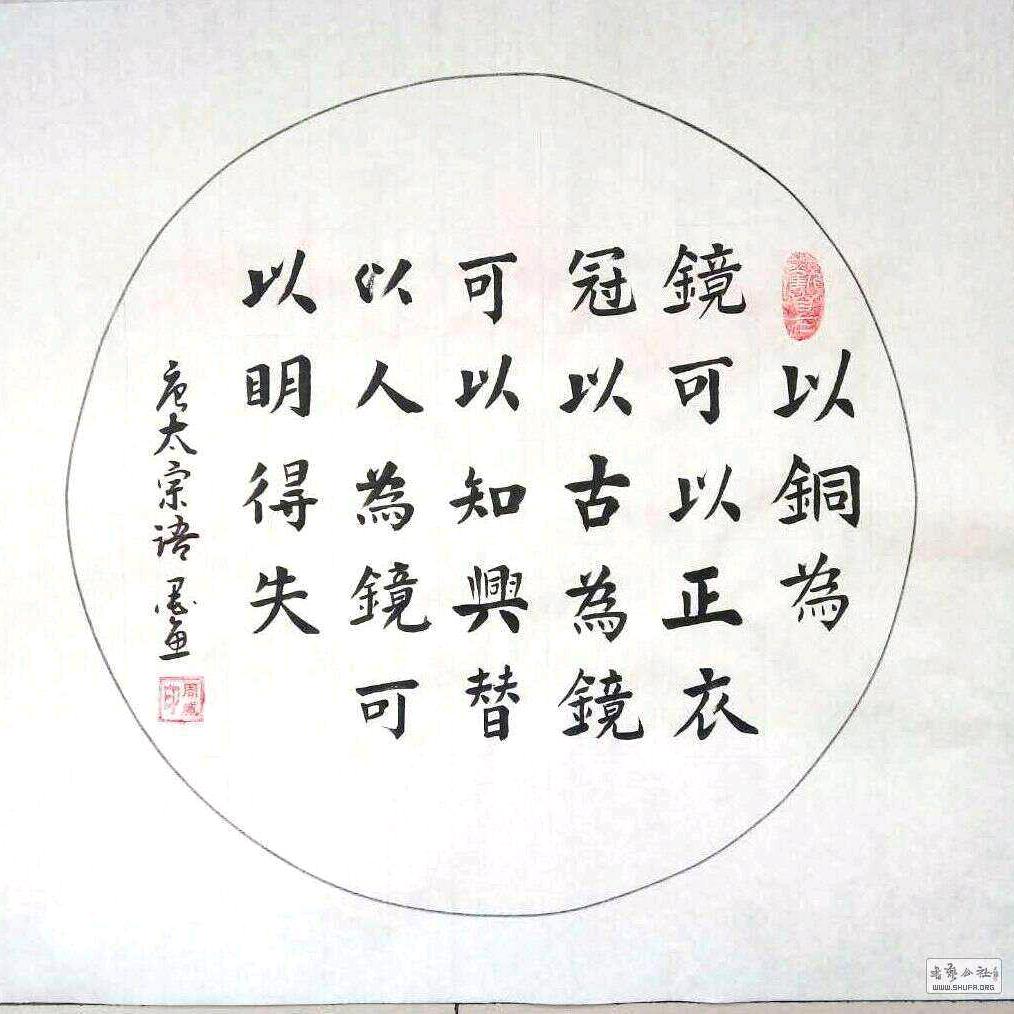 以銅為
鏡可以正衣
冠以古為鏡
可以知興替
以人為鏡可
以明得失
唐太宗語
WWW.SHUFA.ORG